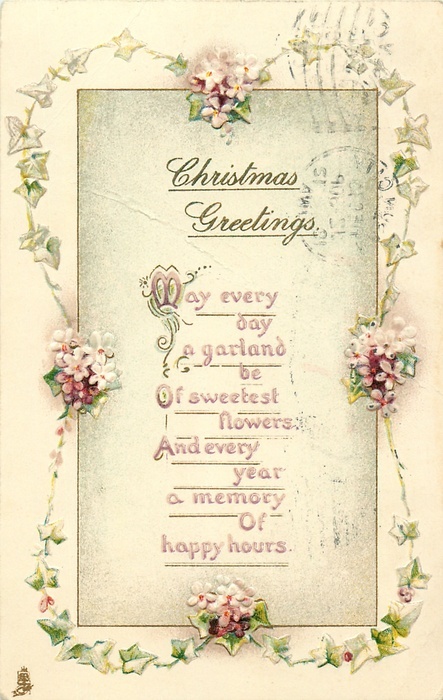 Christmas
Greetings.
May every
day
a garland
be
Of sweetest
flowers.
And every
year
a memory
Of
happy hours.